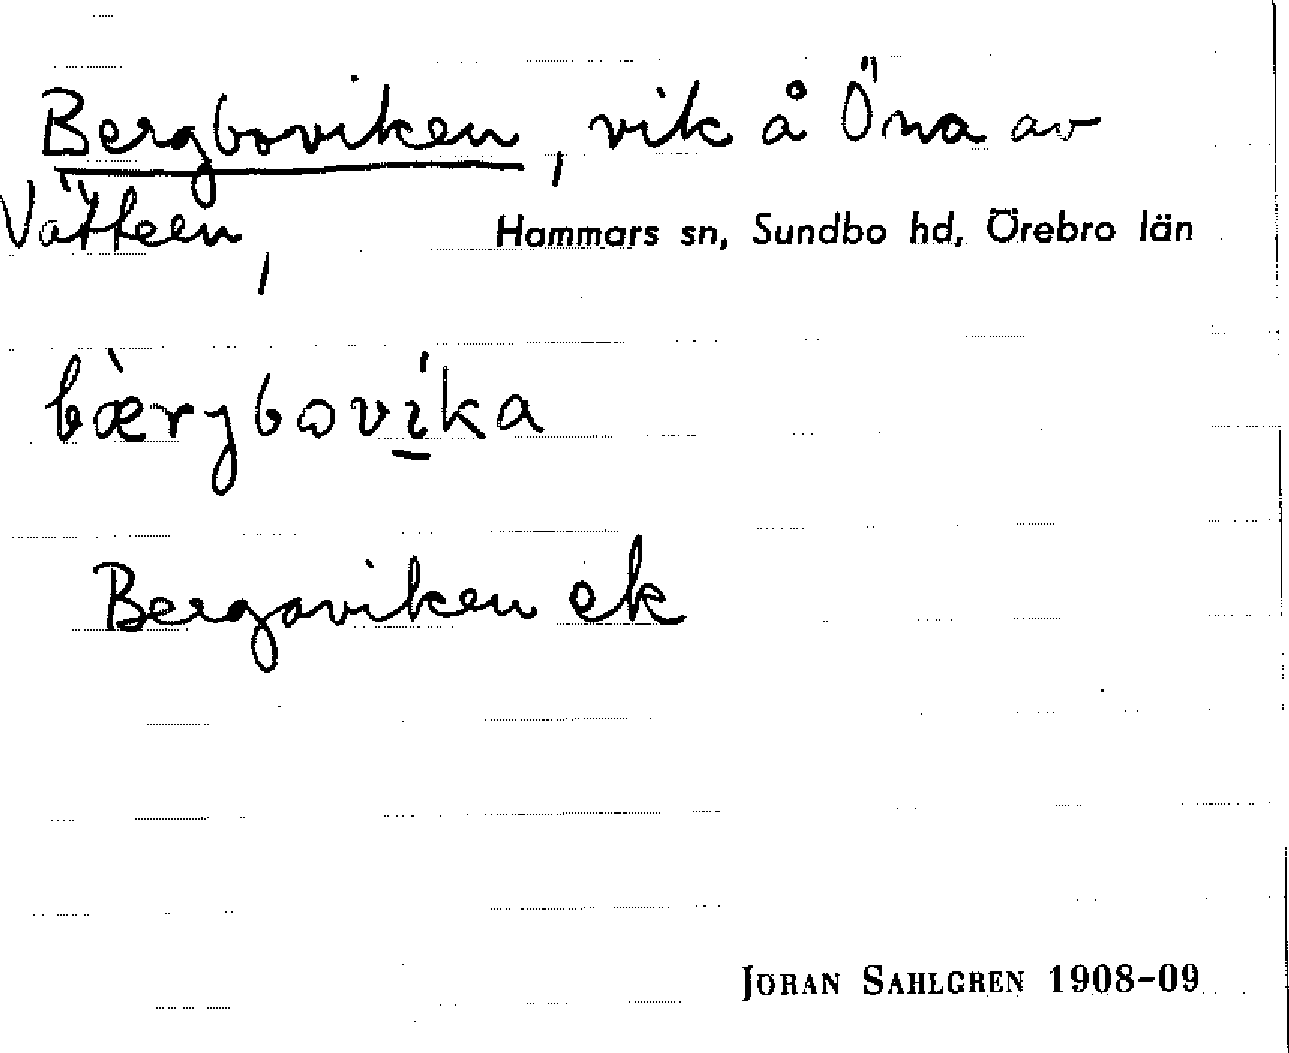 Bergboviken, vik å Öna av
Vättern,
Hammars sn, Sundbo hd, Örebro län
bæ̀rgbovíka
Bergaviken ek
JÖRAN SAHLGREN 1908-09